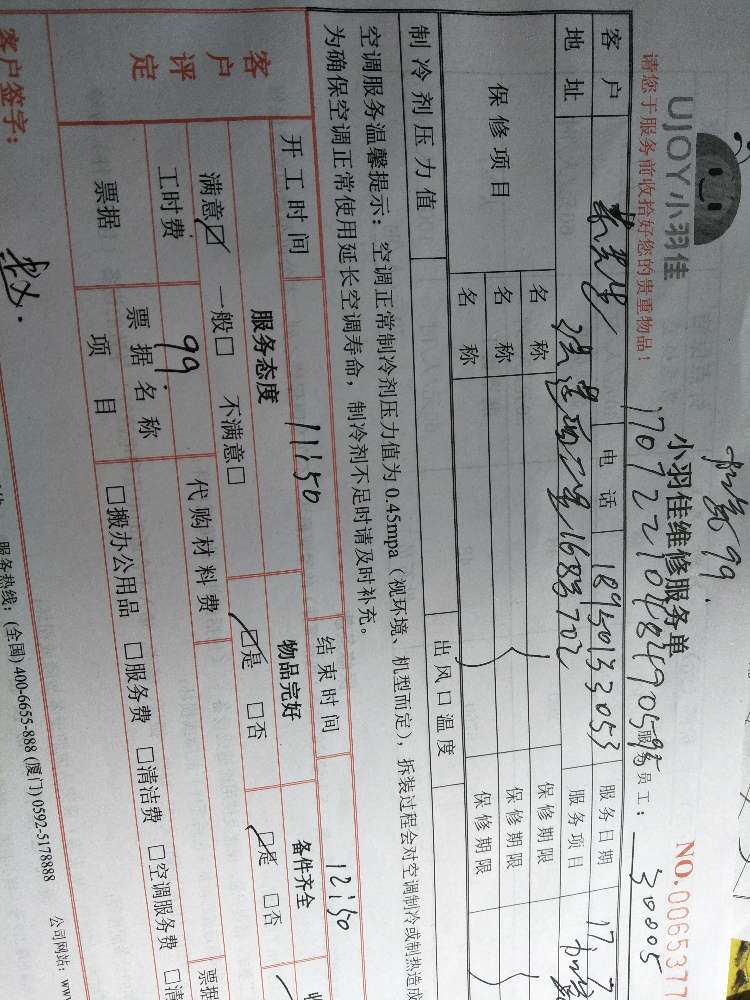 UJOY小羽佳
扣氨99.
小羽佳维修服务单
NO.0065377
请您于服务前收拾好您的贵重物品！
服务员工： 30005
客户 先生 电话 18950133053 服务日期 17.7
地址 1683702 服务项目
保修项目 名称 保修期限
名称 保修期限
名称 保修期限
制冷剂压力值 出风口温度
空调服务温馨提示：空调正常制冷剂压力值为0.45mpa（视环境、机型而定），拆装过程会对空调制冷或制热造成
为确保空调正常使用延长空调寿命，制冷剂不足时请及时补充。
开工时间 11:50 结束时间 12:50
客户评定 服务态度 物品完好 备件齐全
满意☑ 一般□ 不满意□ ☑是 □否 ☑是 □否
工时费 99. 代购材料费
票据 票据名称 票据
项目 □搬办公用品 □服务费 □清洁费 □空调服务费 □清
客户签字：
服务热线：(全国)400-6655-888 (厦门)0592-5178888 公司网站：ww